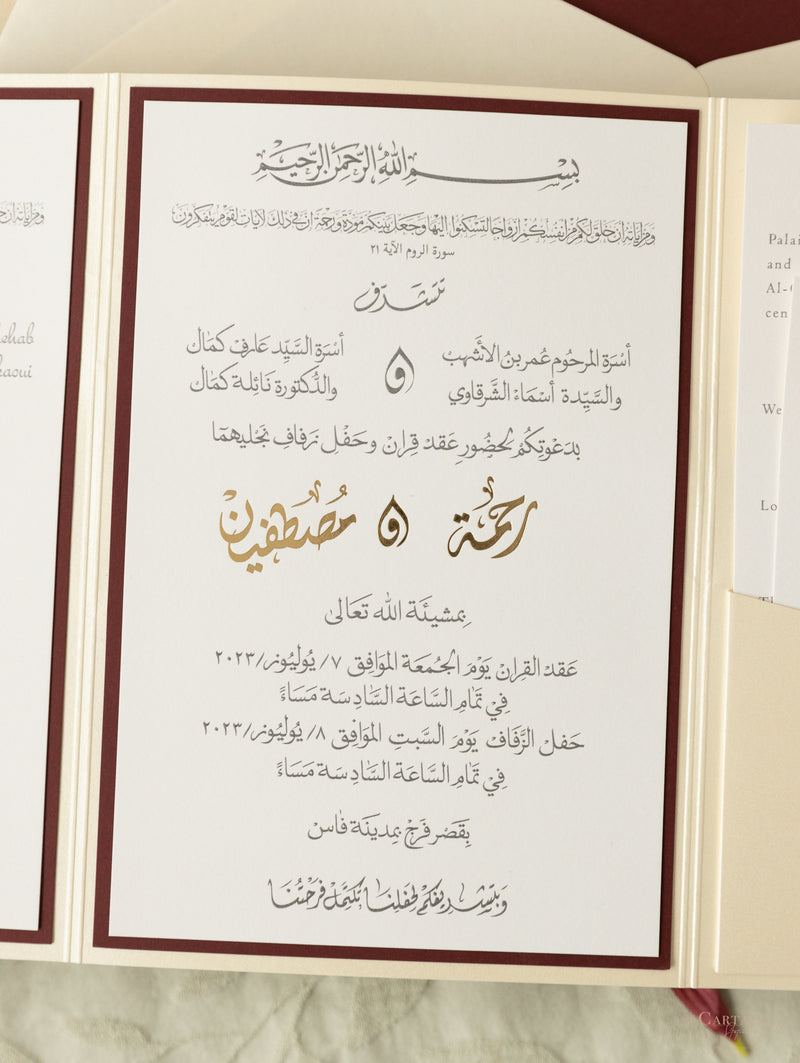 بِسْمِ اللهِ الرَّحْمٰنِ الرَّحِيْمِ
وَمِنْ آيَاتِهِ أَنْ خَلَقَ لَكُم مِّنْ أَنفُسِكُمْ أَزْوَاجًا لِّتَسْكُنُوا إِلَيْهَا وَجَعَلَ بَيْنَكُم مَّوَدَّةً وَرَحْمَةً إِنَّ فِي ذَٰلِكَ لَآيَاتٍ لِّقَوْمٍ يَتَفَكَّرُونَ
سورة الروم الآية ٢١
تتشرّف
أسْرَة المرحُوم عُمر بنُ الاشَهب
والسَّيِّدة أسْمَاء الشَّرقاوي
و
أسْرَة السَّيِّد عَارف كمَال
والدُّكتورة نَائِلة كمَال
بدَعْوتِكُمْ لِحضُورِ عَقد قِران وحَفْلِ زفافِ نَجْليهمَا
رحمة و مُصْطفيان
بِمشيئَة الله تَعَالىٰ
عَقد القِران يَوْمَ الجُمعَة المْوَافِق ٧/ يُوليُوز/٢٠٢٣
فِيْ تمَامِ السَّاعَة السَّادِسَة مَسَاءً
حَفل الزَّفَاف يَوْمَ السَّبتِ المْوَافِق ٨/ يُوليُوز/٢٠٢٣
فِيْ تمَامِ السَّاعَة السَّادِسَة مَسَاءً
بِقَصْر فَرَجْ بمِدينَة فاسْ
وَبتَشْريفكُمْ لِحَفلِنَا تكتَملْ فَرْحَتُنَا
ehab
kaoui
Palai
and
Al-
cen
We
Lo
CART